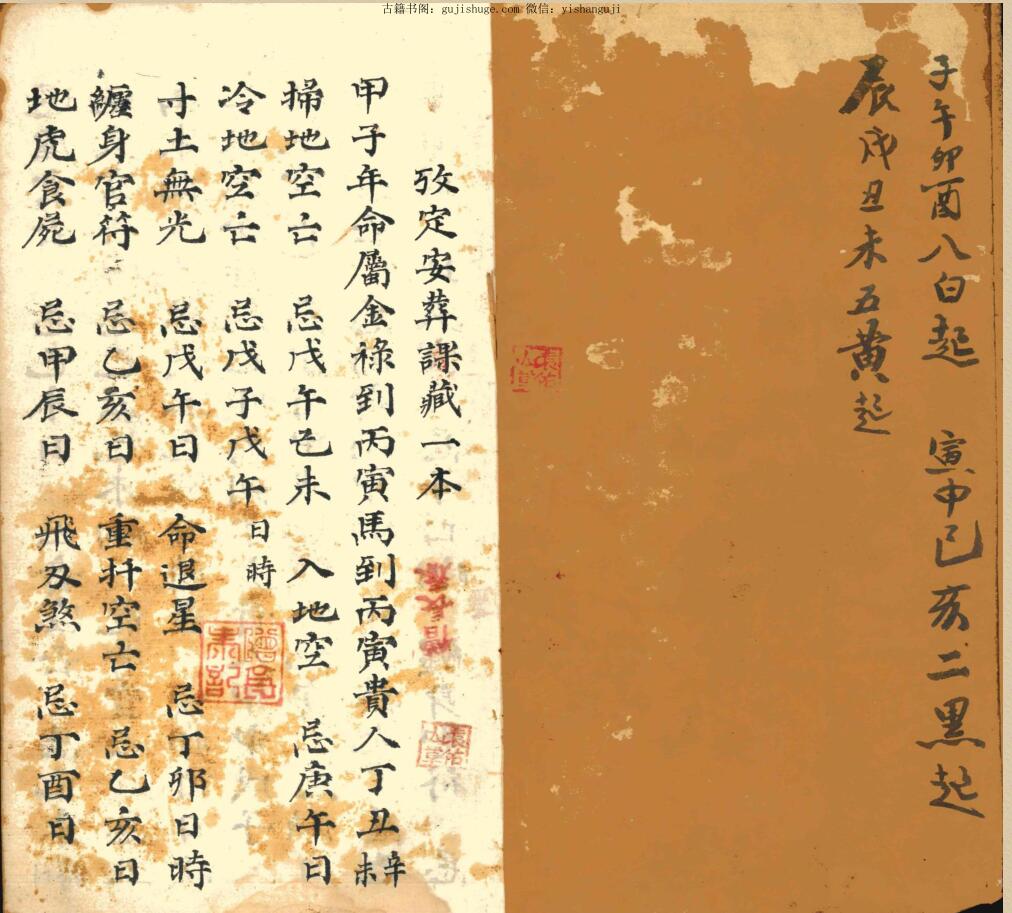 古籍书阁：gujishuge.com 微信：yishanguji
子午卯酉八白起 寅申巳亥二黑起
辰戌丑未五黄起
攷定安葬課藏一本
甲子年命屬金祿到丙寅馬到丙寅貴人丁丑辛未
掃地空亡 忌戊午己未 入地空 忌庚午日
冷地空亡 忌戊子戊午日時
寸土無光 忌戊午日 命退星 忌丁卯日時
纏身官符 忌乙亥日 重扦空亡 忌乙亥日
地虎食屍 忌甲辰日 飛刄煞 忌丁酉日